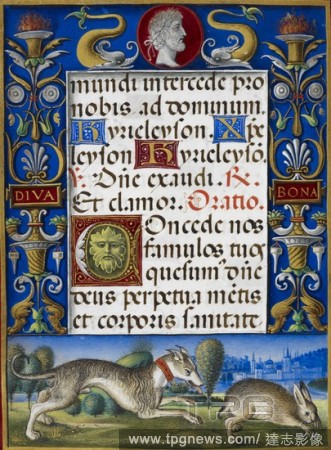 mundi intercede pro
nobis ad dominum.
Kyrieleyson. Xpe
leyson Kyrieleysō.
V. Dñe exaudi. R.
Et clamor. Oratio.
DIVA
BONA
Concede nos
famulos tuos
quesumꝰ dñe
deus perpetua mētis
et corporis sanitate
TPG
www.tpgnews.com/ 達志影像